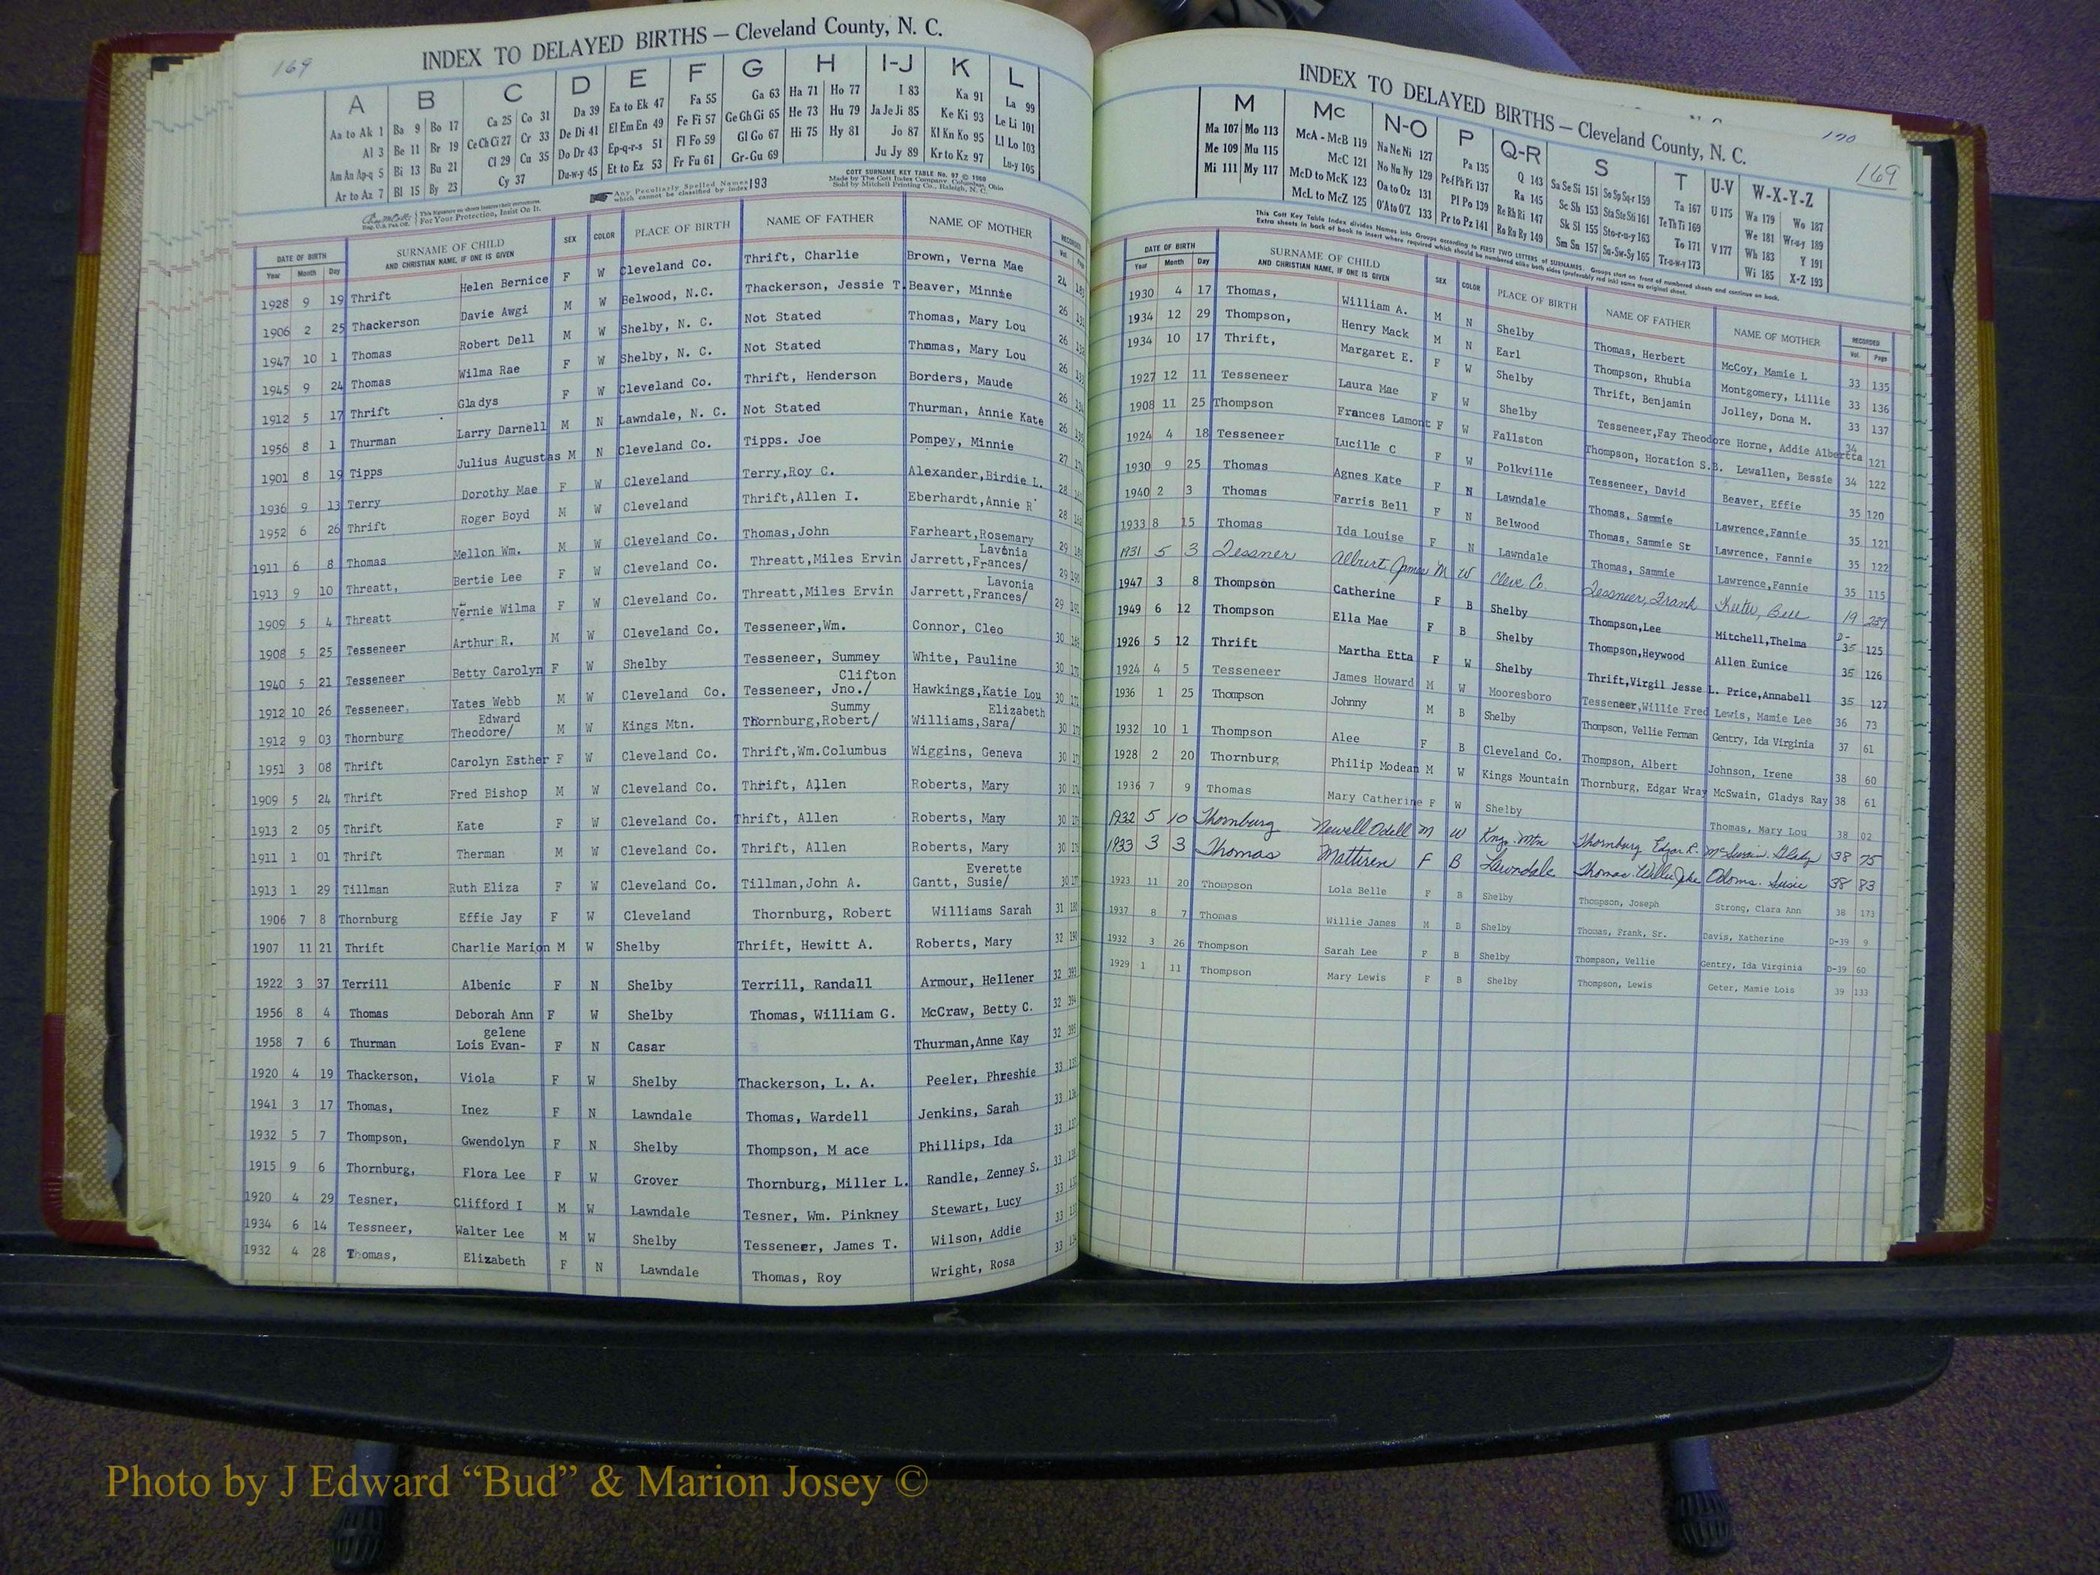 169
INDEX TO DELAYED BIRTHS — Cleveland County, N. C.
A B C D E F G H I-J K L
Aa to Ak 1 Ba 9 Bo 17 Ca 25 Co 31 Da 39 Ea to Ek 47 Fa 55 Ga 63 Ha 71 Ho 77 I 83 Ka 91 La 99
Al 3 Be 11 Br 19 Ce Ch Ci 27 Cr 33 De Di 41 El Em En 49 Fe Fi 57 Ge Gh Gi 65 He 73 Hu 79 Ja Je Ji 85 Ke Ki 93 Le Li 101
Am An Ap-q 5 Bi 13 Bu 21 Cl 29 Cu 35 Do Dr 43 Ep-q-r-s 51 Fl Fo 59 Gl Go 67 Hi 75 Hy 81 Jo 87 Kl Kn Ko 95 Ll Lo 103
Ar to Az 7 Bl 15 By 23 Cy 37 Du-w-y 45 Et to Ez 53 Fr Fu 61 Gr-Gu 69 Ju Jy 89 Kr to Kz 97 Lu-y 105
For Your Protection, Insist On It.
Any Peculiarly Spelled Names which cannot be classified by Index 193
COTT SURNAME KEY TABLE No. 97 © 1960
Made by The Cott Index Company, Columbus, Ohio
Sold by Mitchell Printing Co., Raleigh, N. C.
DATE OF BIRTH SURNAME OF CHILD SEX COLOR PLACE OF BIRTH NAME OF FATHER NAME OF MOTHER RECORDED
Year Month Day AND CHRISTIAN NAME, IF ONE IS GIVEN Vol. Page
1928 9 19 Thrift Helen Bernice F W Cleveland Co. Thrift, Charlie Brown, Verna Mae 24
1906 2 25 Thackerson Davie Awgi M W Belwood, N.C. Thackerson, Jessie T. Beaver, Minnie 26
1947 10 1 Thomas Robert Dell M W Shelby, N. C. Not Stated Thomas, Mary Lou 26
1945 9 24 Thomas Wilma Rae F W Shelby, N. C. Not Stated Thomas, Mary Lou 26
1912 5 17 Thrift Gladys F W Cleveland Co. Thrift, Henderson Borders, Maude 26
1956 8 1 Thurman Larry Darnell M N Lawndale, N. C. Not Stated Thurman, Annie Kate 26
1901 8 19 Tipps Julius Augustas M N Cleveland Co. Tipps. Joe Pompey, Minnie 27
1936 9 13 Terry Dorothy Mae F W Cleveland Terry,Roy C. Alexander,Birdie L. 28
1952 6 26 Thrift Roger Boyd M W Cleveland Thrift,Allen I. Eberhardt,Annie R 28
1911 6 8 Thomas Mellon Wm. M W Cleveland Co. Thomas,John Farheart,Rosemary 29
Lavonia
1913 9 10 Threatt, Bertie Lee F W Cleveland Co. Threatt,Miles Ervin Jarrett,Frances/ 29
Lavonia
1909 5 4 Threatt Vernie Wilma F W Cleveland Co. Threatt,Miles Ervin Jarrett,Frances/ 29
1908 5 25 Tesseneer Arthur R. M W Cleveland Co. Tesseneer,Wm. Connor, Cleo 30
1940 5 21 Tesseneer Betty Carolyn F W Shelby Tesseneer, Summey White, Pauline 30
Clifton
1912 10 26 Tesseneer, Yates Webb M W Cleveland Co. Tesseneer, Jno./ Hawkings,Katie Lou 30
Edward Summy Elizabeth
1912 9 03 Thornburg Theodore/ M W Kings Mtn. Thornburg,Robert/ Williams,Sara/ 30
1951 3 08 Thrift Carolyn Esther F W Cleveland Co. Thrift,Wm.Columbus Wiggins, Geneva 30
1909 5 24 Thrift Fred Bishop M W Cleveland Co. Thrift, Allen Roberts, Mary 30
1913 2 05 Thrift Kate F W Cleveland Co. Thrift, Allen Roberts, Mary 30
1911 1 01 Thrift Therman M W Cleveland Co. Thrift, Allen Roberts, Mary 30
Everette
1913 1 29 Tillman Ruth Eliza F W Cleveland Co. Tillman,John A. Gantt, Susie/ 30
1906 7 8 Thornburg Effie Jay F W Cleveland Thornburg, Robert Williams Sarah 31
1907 11 21 Thrift Charlie Marion M W Shelby Thrift, Hewitt A. Roberts, Mary 32
1922 3 37 Terrill Albenic F N Shelby Terrill, Randall Armour, Hellener 32 393
1956 8 4 Thomas Deborah Ann F W Shelby Thomas, William G. McCraw, Betty C. 32 394
gelene
1958 7 6 Thurman Lois Evan- F N Casar Thurman,Anne Kay 32 395
1920 4 19 Thackerson, Viola F W Shelby Thackerson, L. A. Peeler, Phreshie 33
1941 3 17 Thomas, Inez F N Lawndale Thomas, Wardell Jenkins, Sarah 33
1932 5 7 Thompson, Gwendolyn F N Shelby Thompson, M ace Phillips, Ida 33
1915 9 6 Thornburg, Flora Lee F W Grover Thornburg, Miller L. Randle, Zenney S. 33
1920 4 29 Tesner, Clifford I M W Lawndale Tesner, Wm. Pinkney Stewart, Lucy 33
1934 6 14 Tessneer, Walter Lee M W Shelby Tesseneer, James T. Wilson, Addie 33
1932 4 28 Thomas, Elizabeth F N Lawndale Thomas, Roy Wright, Rosa 33
170
169
INDEX TO DELAYED BIRTHS — Cleveland County, N. C.
M Mc N-O P Q-R S T U-V W-X-Y-Z
Ma 107 Mo 113 McA - McB 119 Na Ne Ni 127 Pa 135 Q 143 Sa Se Si 151 So Sp Sq-r 159 Ta 167 U 175 Wa 179 Wo 187
Me 109 Mu 115 McC 121 No Nu Ny 129 Pe-f Ph Pi 137 Ra 145 Sc Sh 153 Sta Ste Sti 161 Te Th Ti 169 We 181 Wr-u-y 189
Mi 111 My 117 McD to McK 123 Oa to Oz 131 Pl Po 139 Re Rh Ri 147 Sk Sl 155 Sto-r-u-y 163 To 171 V 177 Wh 183 Y 191
McL to McZ 125 O'A to O'Z 133 Pr to Pz 141 Ro Ru Ry 149 Sm Sn 157 Su-Sw-Sy 165 Tr-u-w-y 173 Wi 185 X-Z 193
This Cott Key Table Index divides Names into Groups according to FIRST TWO LETTERS of SURNAMES. Groups start on front of numbered sheets and continue on back.
Extra sheets in back of book to insert where required which should be numbered alike both sides (preferably red ink) same as original sheet.
DATE OF BIRTH SURNAME OF CHILD SEX COLOR PLACE OF BIRTH NAME OF FATHER NAME OF MOTHER RECORDED
Year Month Day AND CHRISTIAN NAME, IF ONE IS GIVEN Vol. Page
1930 4 17 Thomas, William A. M N Shelby Thomas, Herbert McCoy, Mamie L 33 135
1934 12 29 Thompson, Henry Mack M N Earl Thompson, Rhubia Montgomery, Lillie 33 136
1934 10 17 Thrift, Margaret E. F W Shelby Thrift, Benjamin Jolley, Dona M. 33 137
1927 12 11 Tesseneer Laura Mae F W Shelby Tesseneer,Fay Theodore Horne, Addie Albertta 34 121
1908 11 25 Thompson Frances Lamont F W Fallston Thompson, Horation S.B. Lewallen, Bessie 34 122
1924 4 18 Tesseneer Lucille C F W Polkville Tesseneer, David Beaver, Effie 35 120
1930 9 25 Thomas Agnes Kate F N Lawndale Thomas, Sammie Lawrence,Fannie 35 121
1940 2 3 Thomas Farris Bell F N Belwood Thomas, Sammie St Lawrence, Fannie 35 122
1933 8 15 Thomas Ida Louise F N Lawndale Thomas, Sammie Lawrence,Fannie 35 115
1931 5 3 Tessner Albert James M W Cleve Co. Tessneer, Frank 19 239
1947 3 8 Thompson Catherine F B Shelby Thompson,Lee Mitchell,Thelma D-35 125
1949 6 12 Thompson Ella Mae F B Shelby Thompson,Heywood Allen Eunice 35 126
1926 5 12 Thrift Martha Etta F W Shelby Thrift,Virgil Jesse L. Price,Annabell 35 127
1924 4 5 Tesseneer James Howard M W Mooresboro Tesseneer,Willie Fred Lewis, Mamie Lee 36 73
1936 1 25 Thompson Johnny M B Shelby Thompson, Vellie Ferman Gentry, Ida Virginia 37 61
1932 10 1 Thompson Alee F B Cleveland Co. Thompson, Albert Johnson, Irene 38 60
1928 2 20 Thornburg Philip Modean M W Kings Mountain Thornburg, Edgar Wray McSwain, Gladys Ray 38 61
1936 7 9 Thomas Mary Catherine F W Shelby Thomas, Mary Lou 38 02
1932 5 10 Thornburg Newell Odell M W Kngs. Mtn Thornburg Edgar R. McSwain. Glady 38 75
1933 3 3 Thomas Mattiren F B Lawndale Thomas. Willie Jake Odoms. Susie 38 83
1923 11 20 Thompson Lola Belle F B Shelby Thompson, Joseph Strong, Clara Ann 38 173
1937 8 7 Thomas Willie James M B Shelby Thomas, Frank, Sr. Davis, Katherine D-39 9
1932 3 26 Thompson Sarah Lee F B Shelby Thompson, Vellie Gentry, Ida Virginia D-39 60
1929 1 11 Thompson Mary Lewis F B Shelby Thompson, Lewis Geter, Mamie Lois 39 133
Photo by J Edward “Bud” & Marion Josey ©